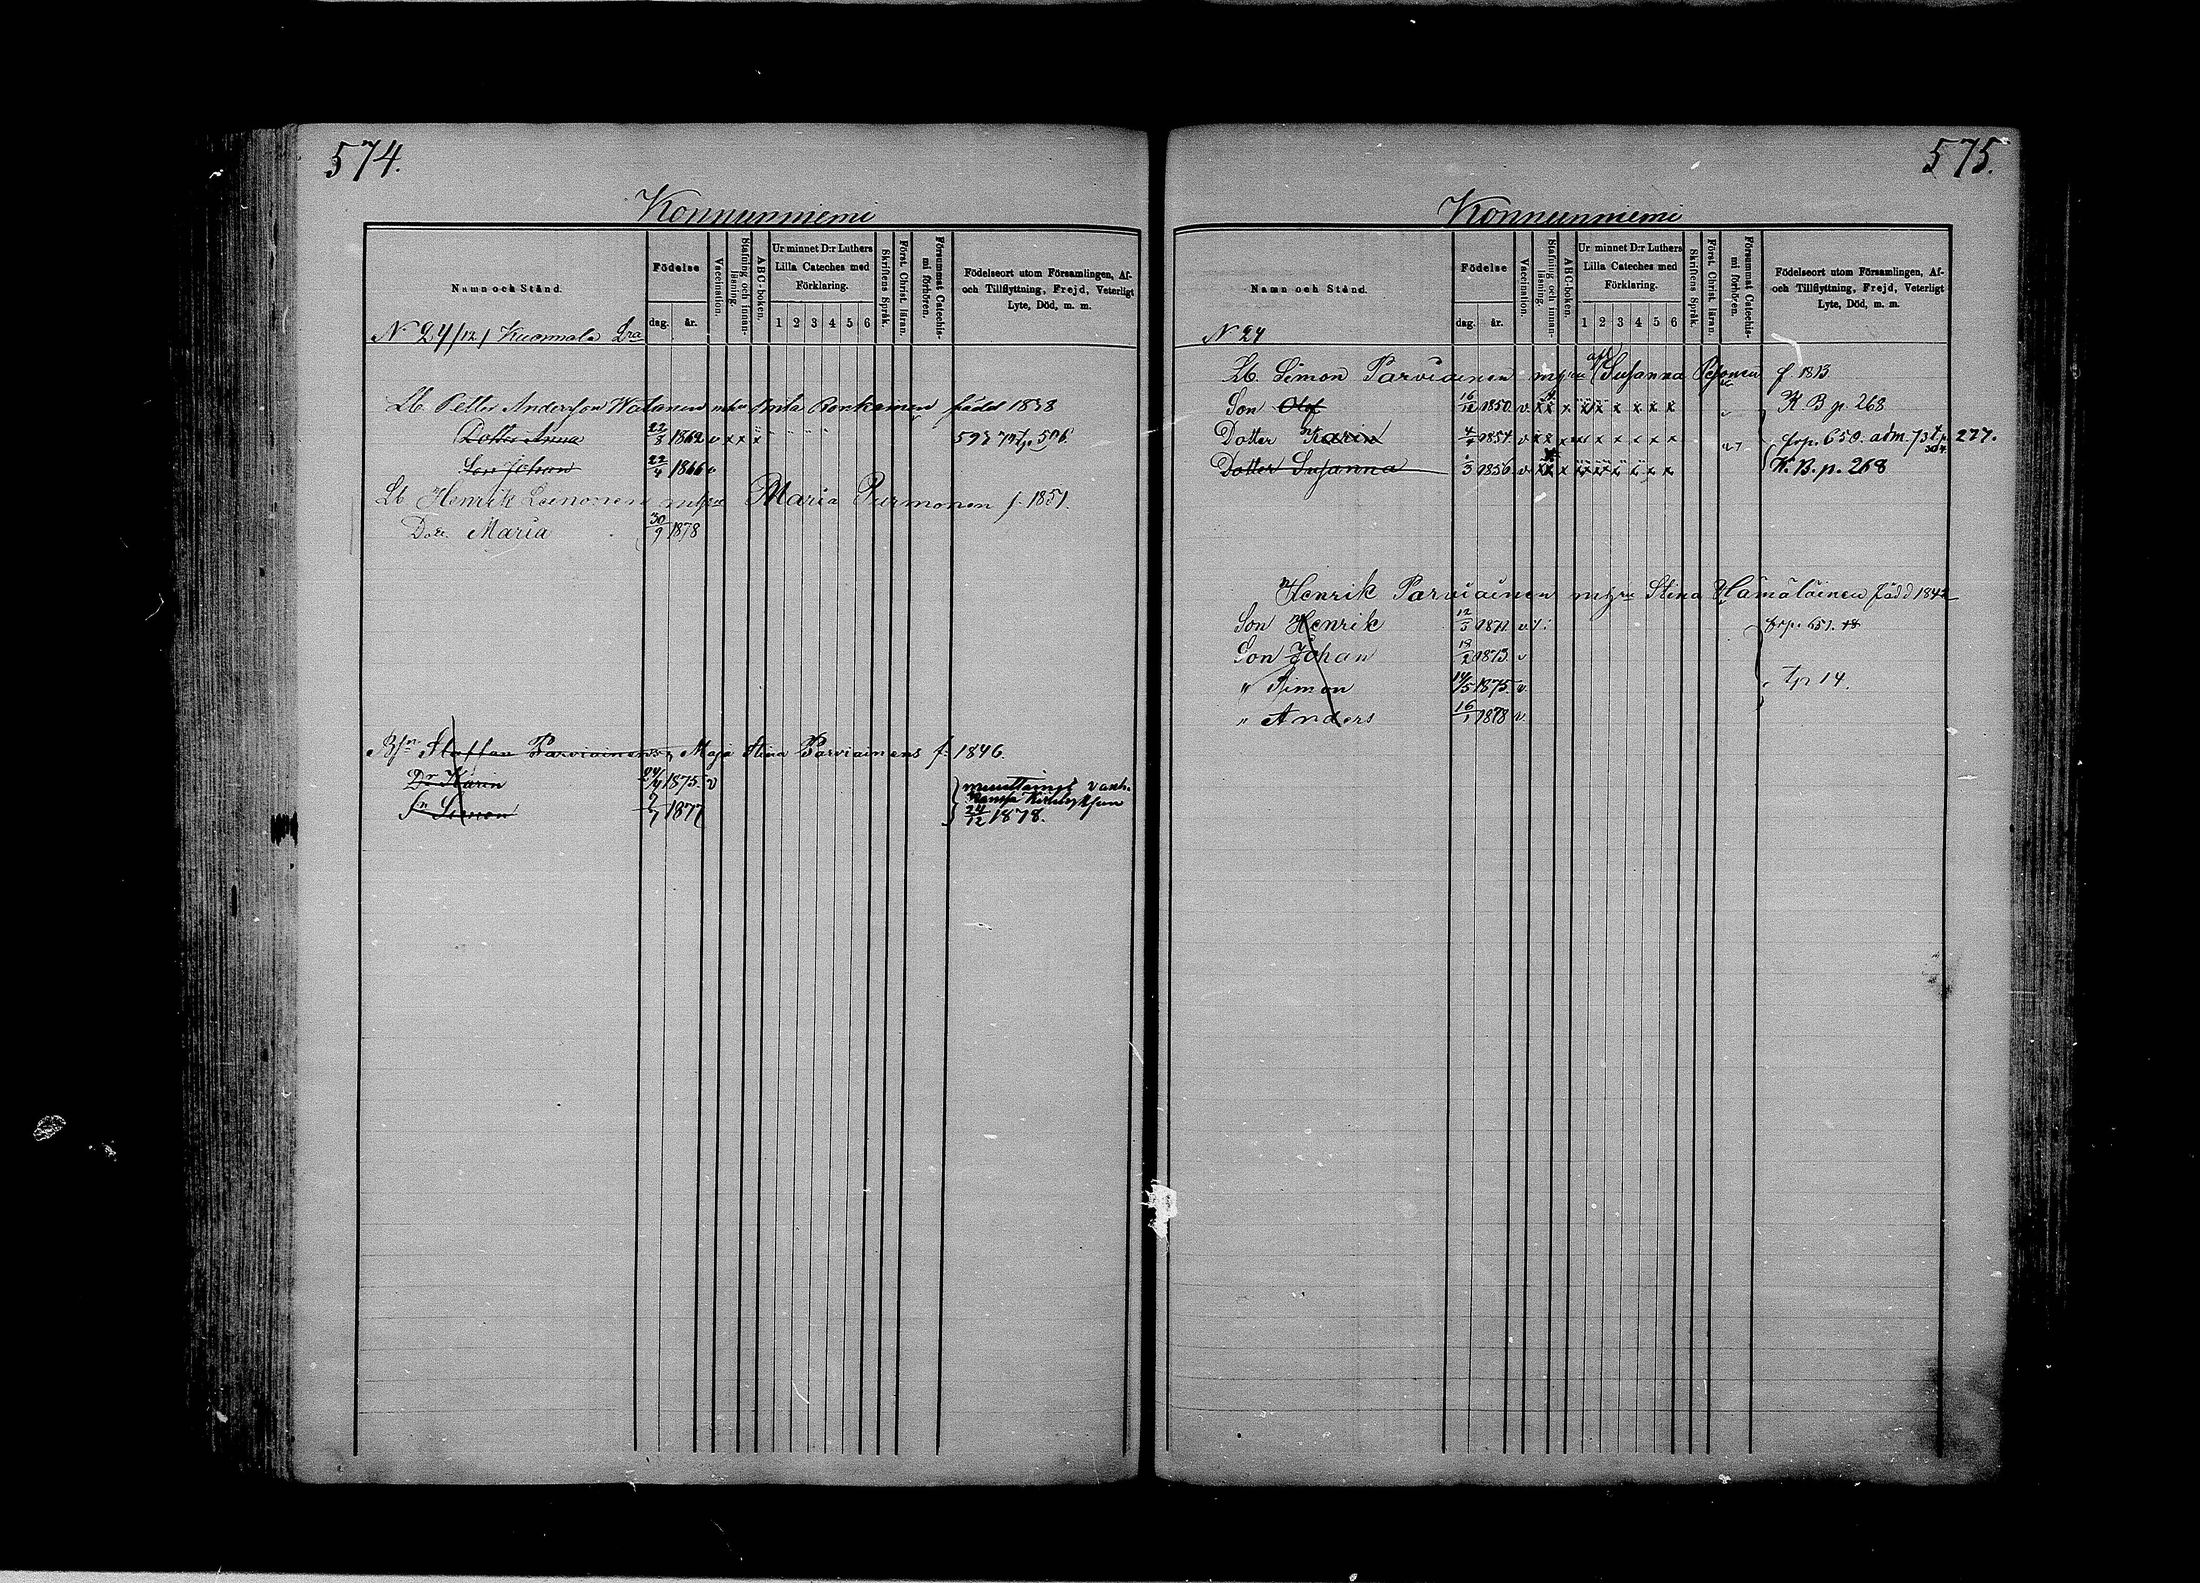 574.
Konnunniemi
Namn och Stånd.
Födelse
dag. år.
Vaccination.
Stafning och innanläsning.
ABC-boken.
Ur minnet D:r Luthers Lilla Cateches med Förklaring.
1 2 3 4 5 6
Skriftens Språk.
Först. Christ. läran.
Försummat Catechismi förhören.
Födelseort utom Församlingen, Af-
och Tillflyttning, Frejd, Veterligt
Lyte, Död, m. m.
N 24 /12/ Kuonmala
Lb. Petter Andersson Watanen m hu Ronkainen född 1838
Dotter Anna 22/3 1862 v x x x
Son Johan 22/4 1866 v
Lb Henrik Leinonen m hu Maria Purmonen f. 1851.
Dotr. Maria 30/9 1878
Staffan Parviainens, Maja Stina Parviainens f. 1846.
Dr Karin 24/4 1875 v
Sn Simon 2/7 1877
24/12 1878.
575.
Konnunniemi
Namn och Stånd.
Födelse
dag. år.
Vaccination.
Stafning och innanläsning.
ABC-boken.
Ur minnet D:r Luthers Lilla Cateches med Förklaring.
1 2 3 4 5 6
Skriftens Språk.
Först. Christ. läran.
Försummat Catechismi förhören.
Födelseort utom Församlingen, Af-
och Tillflyttning, Frejd, Veterligt
Lyte, Död, m. m.
N 24
Lb. Simon Parviainen Susanna f 1813
Son Olof 16/12 1850. v. x x x x x x x x K. B. p. 268
Dotter Karin 1854. v x x x x x x x x p. 650. adm. 277.
Dotter Susanna 1/3 1856 v x x x x x x x x K. B. p. 268
Henrik Parviainen m hru Stina Hämäläinen född 1842
Son Henrik 12/3 1871 v p. 651.
Son Johan 18/2 1873 v
" Simon 14/5 1875 v. tp 14.
" Anders 16/1 1878 v.